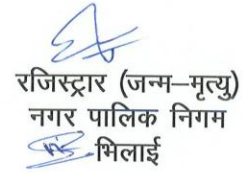 रजिस्ट्रार (जन्म–मृत्यु)
नगर पालिक निगम
भिलाई